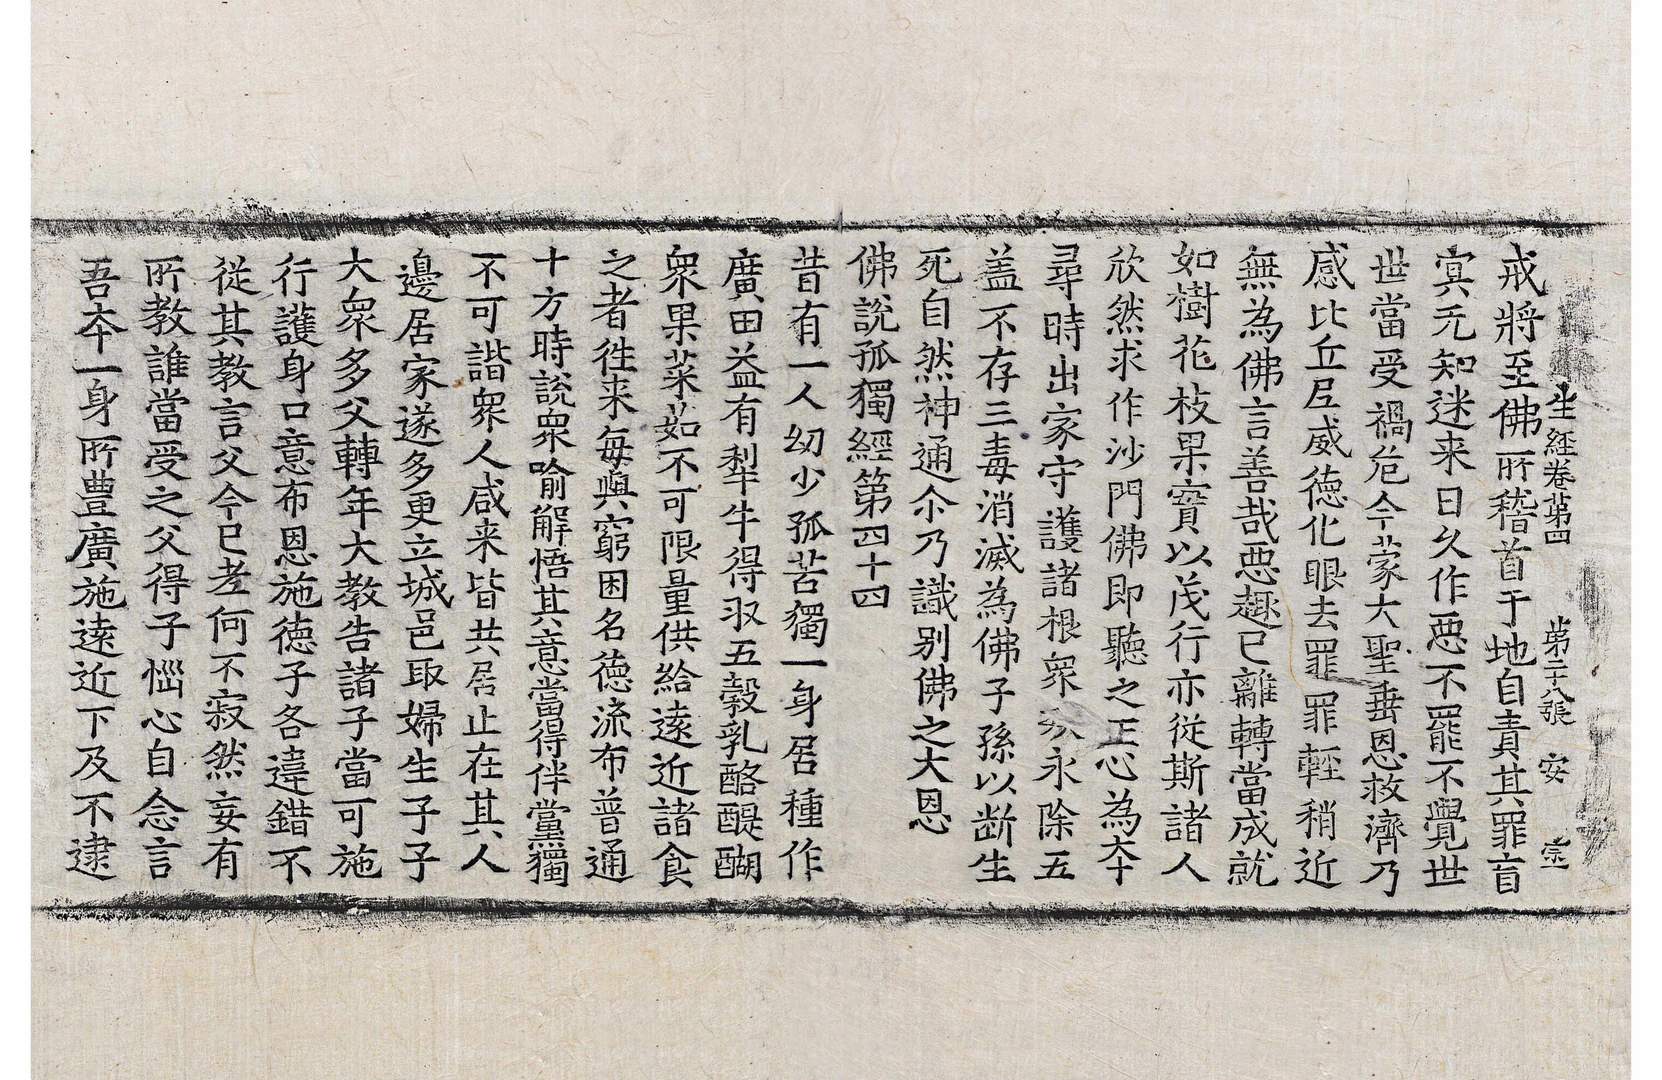 生經卷第四 第二十八張 安 宗
戒將至佛所稽首于地自責其罪盲
冥无知迷来日久作惡不罷不覺世
世當受禍危今蒙大聖垂恩救濟乃
感比丘尼威德化眼去罪罪輕稍近
無為佛言善哉惡趣已離轉當成就
如樹花枝果實以茂行亦從斯諸人
欣然求作沙門佛即聽之正心為夲
尋時出家守護諸根衆永永除五
盖不存三毒消滅為佛子孫以断生
死自然神通尒乃識别佛之大恩
佛說孤獨經第四十四
昔有一人幼少孤苦獨一身居種作
廣田益有犁牛得収五穀乳酪醍醐
衆果菜茹不可限量供給遠近諸食
之者徃来每與窮困名德流布普通
十方時說衆喻解悟其意當得伴黨獨
不可諧衆人咸来皆共居止在其人
邊居家遂多更立城邑取婦生子子
大衆多父轉年大教告諸子當可施
行護身口意布恩施德子各違錯不
從其教言父今已老何不寂然妄有
所教誰當受之父得子惱心自念言
吾夲一身所豊廣施遠近下及不逮